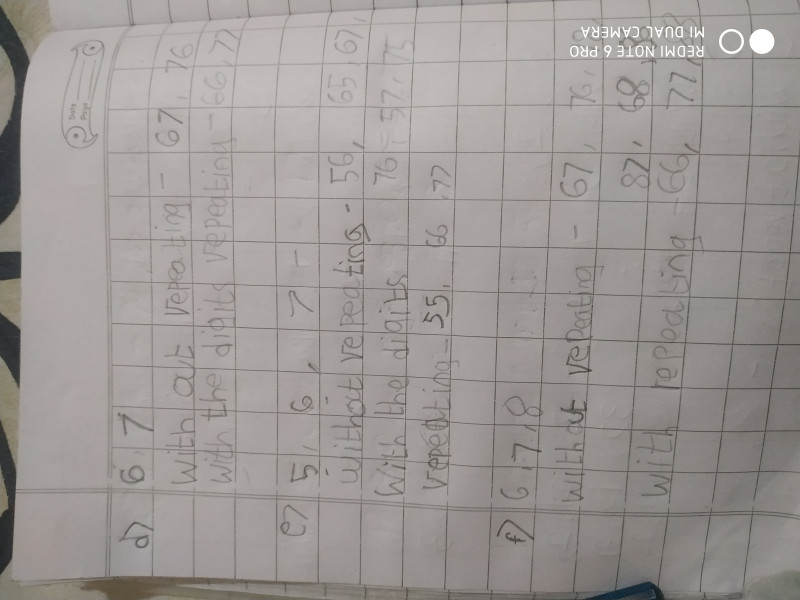 Date
Page
d) 6, 7
With out repeating - 67, 76
With the digits repeating - 66, 77
e) 5, 6, 7 -
Without repeating - 56, 65, 67,
With the digits 76, 57, 75
repeating - 55, 66, 77
f) 6, 7, 8
without repeating - 67, 76,
87, 68,
with repeating - 66, 77,
REDMI NOTE 6 PRO
MI DUAL CAMERA